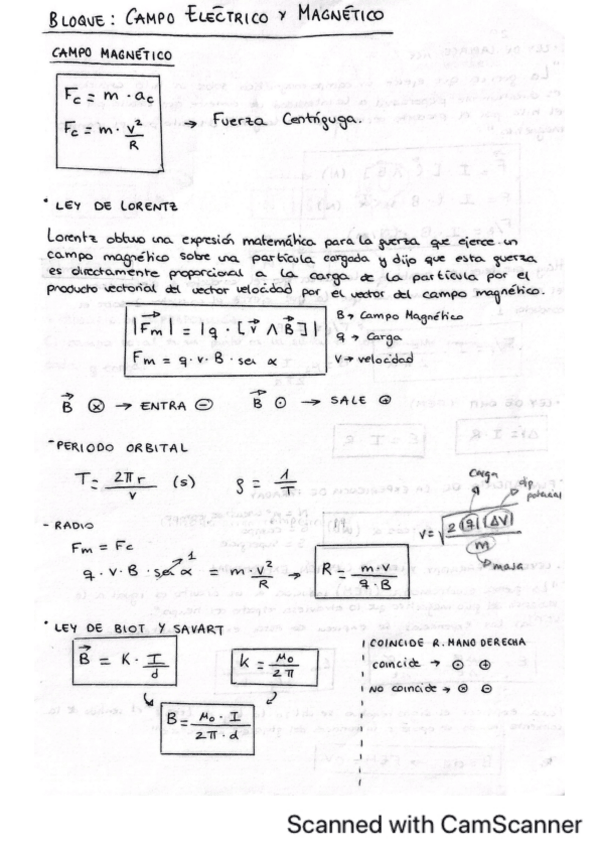 BLOQUE: CAMPO ELÉCTRICO Y MAGNÉTICO
CAMPO MAGNÉTICO
Fc = m · ac
Fc = m · v²/R → Fuerza Centrífuga.
* LEY DE LORENTZ
Lorentz obtuvo una expresión matemática para la fuerza que ejerce un
campo magnético sobre una partícula cargada y dijo que esta fuerza
es directamente proporcional a la carga de la partícula por el
producto vectorial del vector velocidad por el vector del campo magnético.
|F⃗m| = |q · [v⃗ ∧ B⃗]|
Fm = q · v · B · sen α
B → Campo Magnético
q → Carga
V → velocidad
B⃗ ⊗ → ENTRA ⊖ B⃗ ⊙ → SALE ⊕
- PERIODO ORBITAL
T = 2πr/v (s) f = 1/T
- RADIO
Fm = Fc
q · v · B · sen α → 1 = m · v²/R → R = m·v/q·B
carga
dip potencial
v = √(2|q||ΔV|/m)
masa
* LEY DE BIOT Y SAVART
B⃗ = K · I/d
k = μ₀/2π
B = μ₀ · I/2π · d
COINCIDE R. MANO DERECHA
coincide → ⊙ ⊕
NO coincide → ⊗ ⊖
Scanned with CamScanner